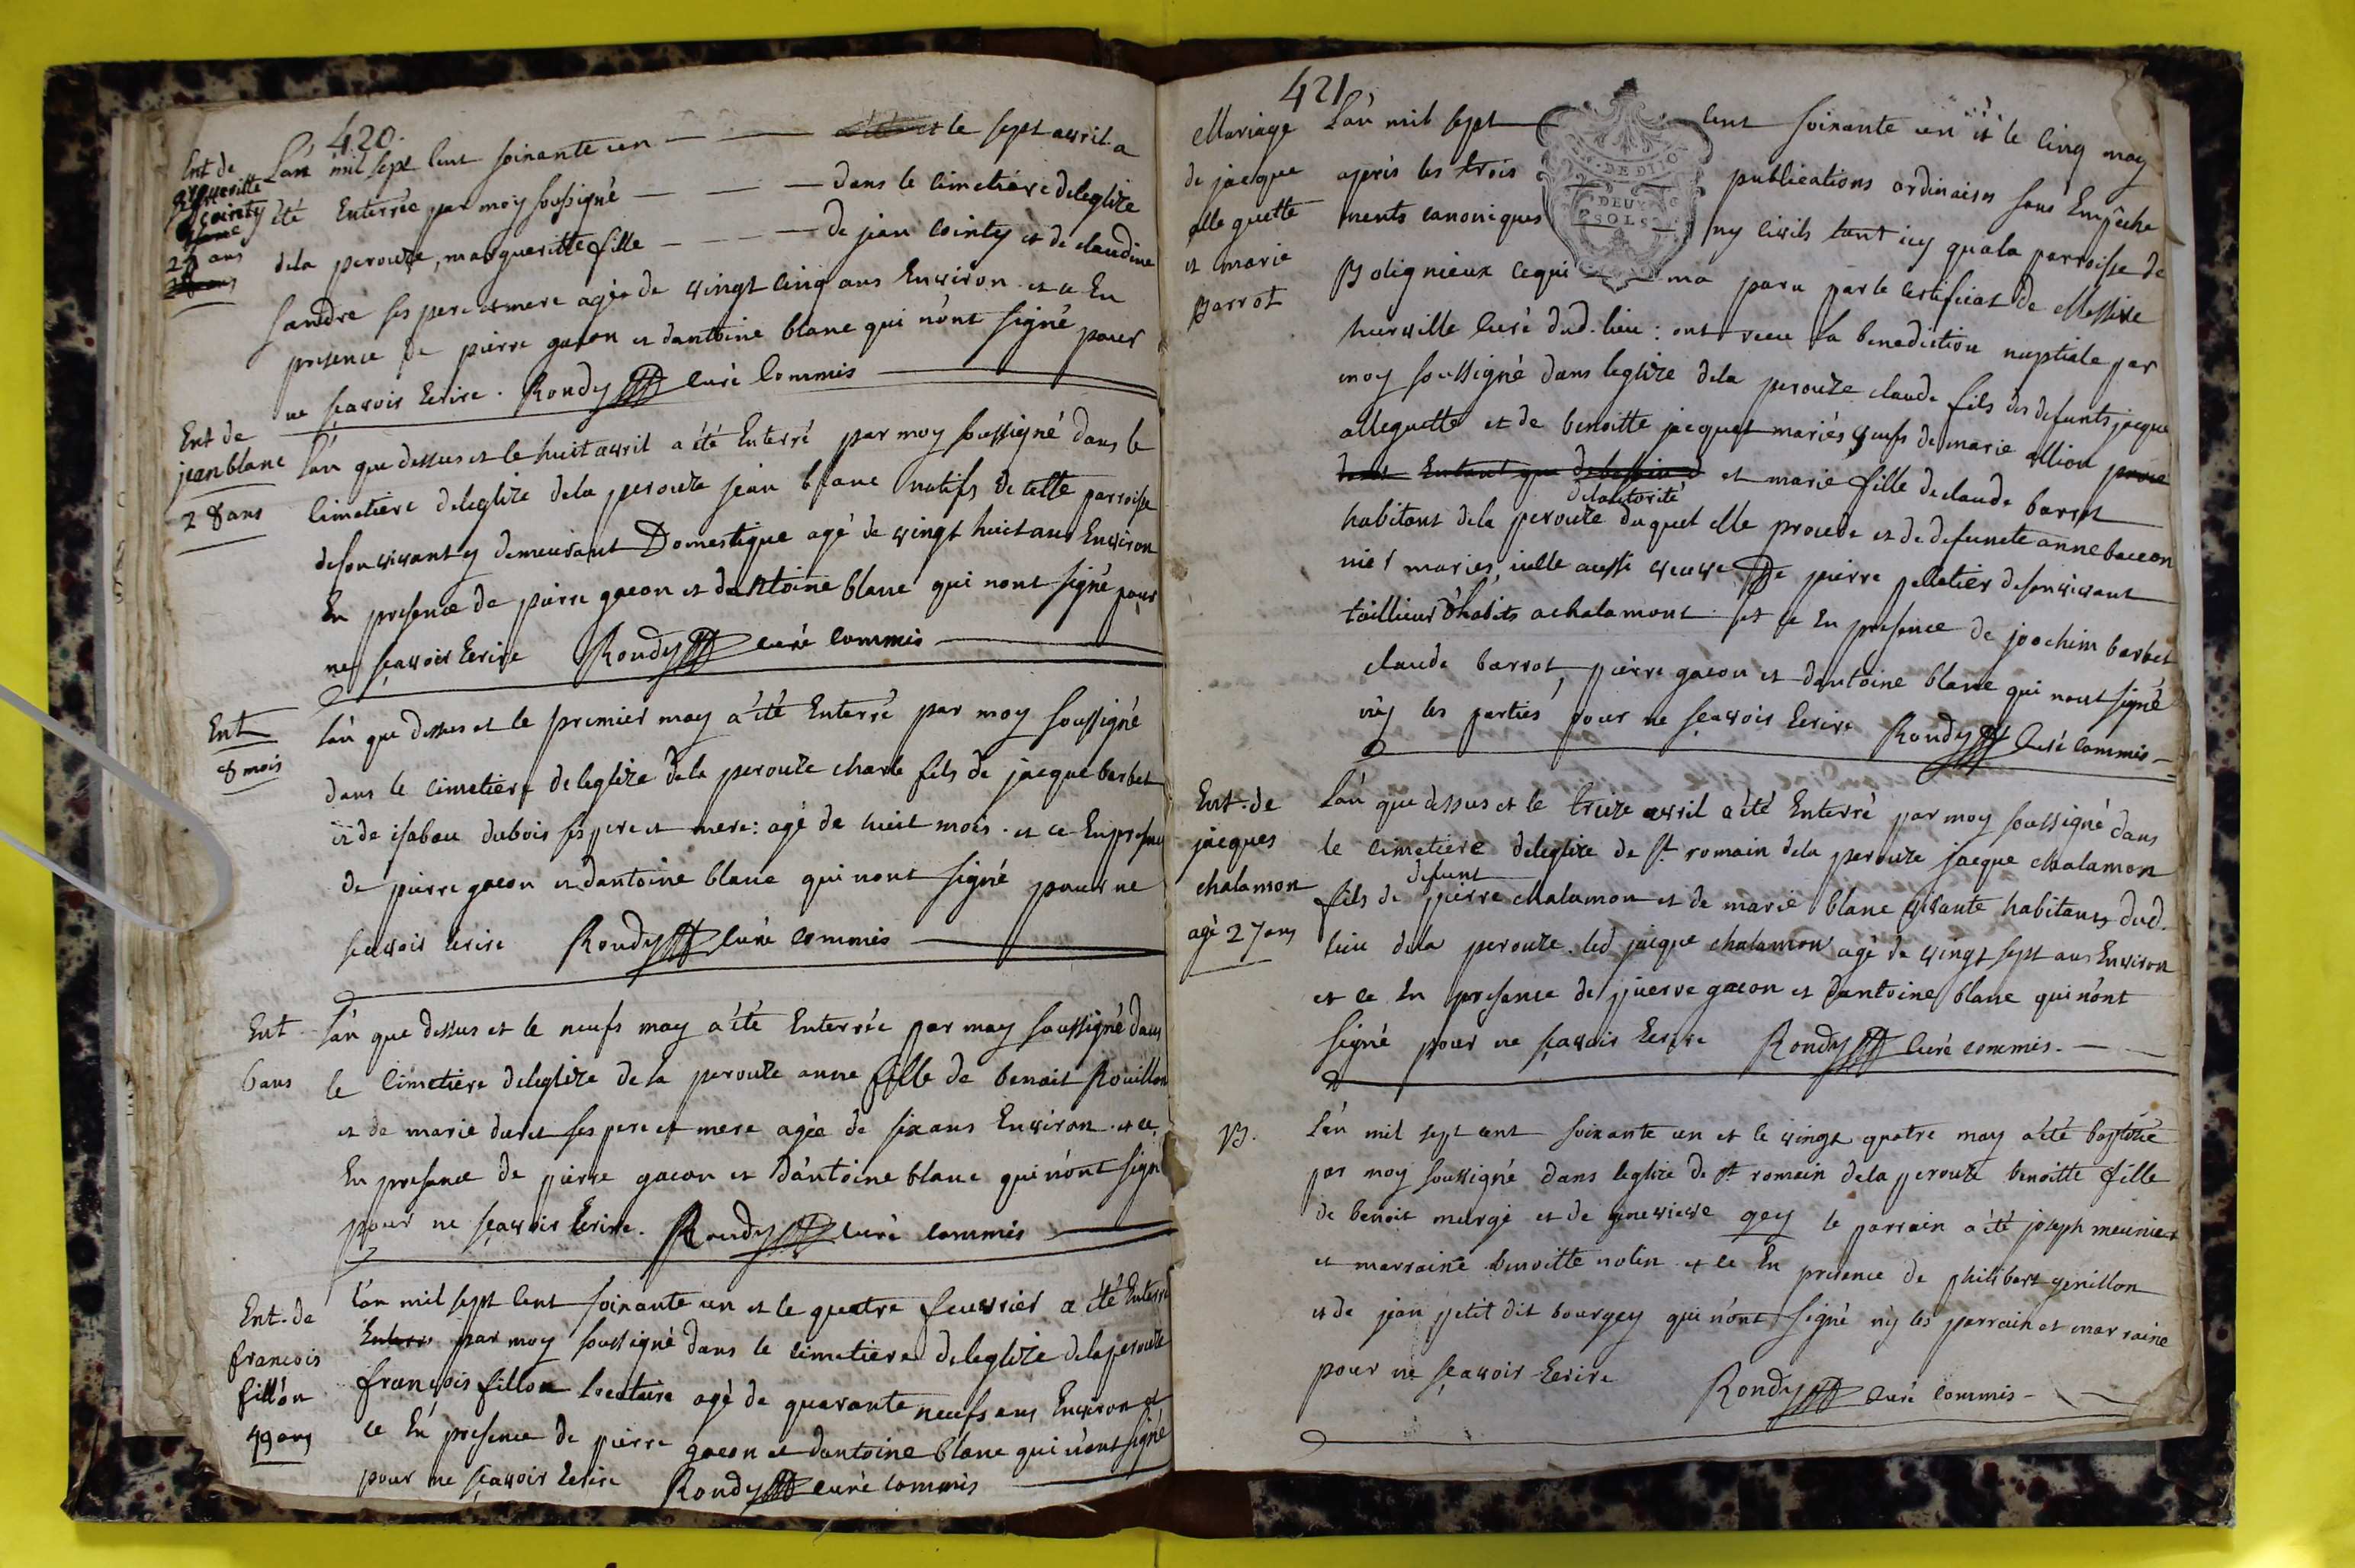 420.
Ent de
margueritte
Cointy
25 ans
L'an mil sept cent soixante un et le sept avril a
été Enterrée par moy soussigné dans le cimetiére de leglize
dela perouze, margueritte fille de jean Cointy et de claudine
sandre ses pere et mere agée de vingt cinq ans Environ et ce En
presence de pierre gacon et dantoine blanc qui n'ont signé pour
ne sçavoir Ecrire. Rondy curé Commis
Ent de
jean blanc
28 ans
l'an que dessus et le huit avril a été Enterré par moy soussigné dans le
cimetiere deleglize dela perouze jean blanc natifs de cette parroisse
de son vivant y demeurant Domestique agé de vingt huit ans Environ
En presence de pierre gacon et dantoine blanc qui nont signé pour
ne sçavoir Ecrire Rondy curé commis
Ent
8 mois
l'an que dessus et le premier may a été Enterré par moy soussigné
dans le cimetiere deleglize dela perouze charle fils de jacque barbet
et de isabau dubois ses pere et mere: agé de huit mois. et ce En presence
de pierre gacon et dantoine blanc qui nont signé pour ne
scavoir Ecrire Rondy curé commis
Ent
6 ans
l'an que dessus et le neufs may a été Enterrée par moy soussigné dans
le cimetiere deleglize dela perouze anne fille de benoit Rouillon
et de marie duret ses pere et mere agée de six ans Environ. et ce
En presence de pierre gacon et d'antoine blanc qui n'ont signé
pour ne sçavoir Ecrire. Rondy curé commis
Ent. de
francois
fillon
49 ans
l'an mil sept cent soixante un et le quatre feuvrier a été Enterré
Enterré par moy soussigné dans le cimetiere deleglize dela perouze
françois fillon locataire agé de quarante neufs ans Environ et
ce En presence de pierre gacon et dantoine blanc qui n'ont signé
pour ne sçavoir Ecrire Rondy curé commis
421
Mariage
de jacque
alleguette
et marie
Barrot
L'an mil sept cent soixante un et le cinq may
après les trois publications ordinaires sans Empêche
ments canoniques ny civils tant icy qua la parroisse de
DE DIJO
DEUX
SOLS
Bolignieux cequi ma paru par le certificat de Messire
hurville curé dud. lieu: ont recu la benediction nuptiale par
moy soussigné dans leglize dela perouze claude fils des defunts jacque
alleguette et de benoitte jacquet mariés, veufs de marie Allion
et marie fille de claude barrot
delautorité
habitant dela perouze duquel elle procede et de defuncte anne baccon
nier mariés, icelle aussi veuve De pierre pelletier de son vivant
taillieur d'habits a chalamont. et ce En presence de joachim barbet
claude barrot, pierre gacon et dantoine blanc qui nont signé
ny les parties pour ne sçavoir Ecrire Rondy Curé commis
Ent. de
jacques
chalamon
agé 27 ans
L'an que dessus et le treize avril a été Enterré par moy soussigné dans
le cimetiere deleglize de St romain dela perouze jacque chalamon
defunt
fils de pierre chalamon et de marie blanc vivante habitants dud.
lieu dela perouze. led jacque chalamon agé de vingt sept ans Environ
et ce En presence de pierre gacon et dantoine blanc qui n'ont
signé pour ne sçavoir Ecrire Rondy Curé commis.
B.
L'an mil sept cent soixante un et le vingt quatre may a été baptizée
par moy soussigné dans leglize de St romain dela perouze benoitte fille
de benoit murgé et de genevieve gey le parrain a été joseph meunier
et marraine benoitte nolin et ce En presence de philibert genillon
et de jean petit dit bourgey qui n'ont signé ny les parrain et marraine
pour ne sçavoir Ecrire Rondy curé commis